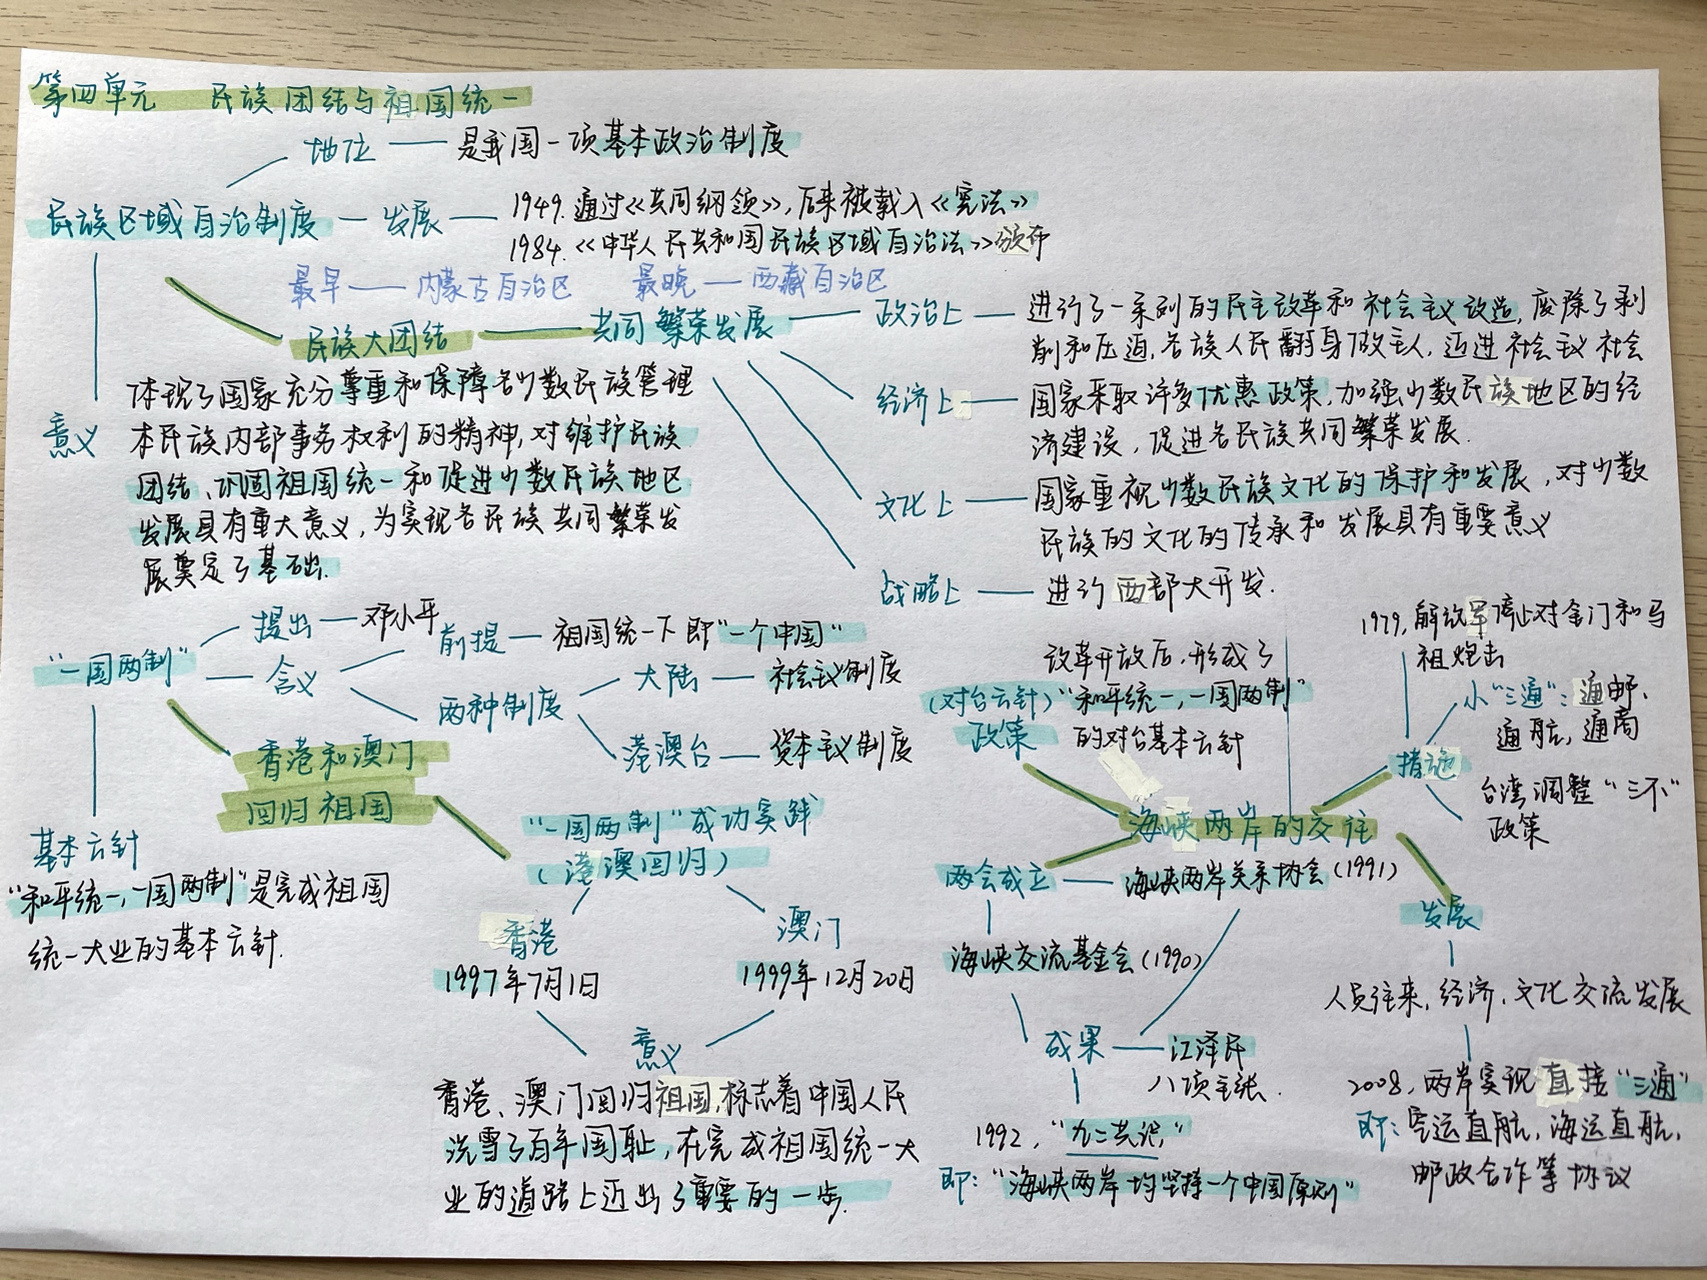 第四单元 民族团结与祖国统一
地位 是我国一项基本政治制度
民族区域自治制度 发展
1949.通过《共同纲领》,后来被载入《宪法》
1984.《中华人民共和国民族区域自治法》颁布
最早——内蒙古自治区 最晚——西藏自治区
民族大团结 共同繁荣发展
政治上
进行了一系列的民主改革和社会主义改造,废除了剥
削和压迫,各族人民翻身做主人,迈进社会主义社会
经济上
国家采取许多优惠政策,加强少数民族地区的经
济建设,促进各民族共同繁荣发展.
文化上
国家重视少数民族文化的保护和发展,对少数
民族的文化的传承和发展具有重要意义
战略上 进行西部大开发.
意义
体现了国家充分尊重和保障各少数民族管理
本民族内部事务权利的精神,对维护民族
团结、巩固祖国统一和促进少数民族地区
发展具有重大意义,为实现各民族共同繁荣发
展奠定了基础.
“一国两制”
提出 邓小平
含义
前提 祖国统一下即“一个中国”
两种制度
大陆 社会主义制度
港澳台 资本主义制度
基本方针
“和平统一,一国两制”是完成祖国
统一大业的基本方针.
香港和澳门
回归祖国
“一国两制”成功实践
(港澳回归)
香港
1997年7月1日
澳门
1999年12月20日
意义
香港、澳门回归祖国,标志着中国人民
洗雪了百年国耻,在完成祖国统一大
业的道路上迈出了重要的一步.
海峡两岸的交往
(对台方针)
政策
改革开放后,形成了
“和平统一,一国两制”
的对台基本方针
措施
1979,解放军停止对金门和马
祖炮击
小“三通”:通邮、
通航,通商
台湾调整“三不”
政策
两会成立 海峡两岸关系协会(1991)
海峡交流基金会(1990)
成果 江泽民
八项主张.
1992,“九二共识,”
即:“海峡两岸均坚持一个中国原则”
发展
人员往来,经济,文化交流发展
2008,两岸实现直接“三通”
即:空运直航,海运直航,
邮政合作等协议